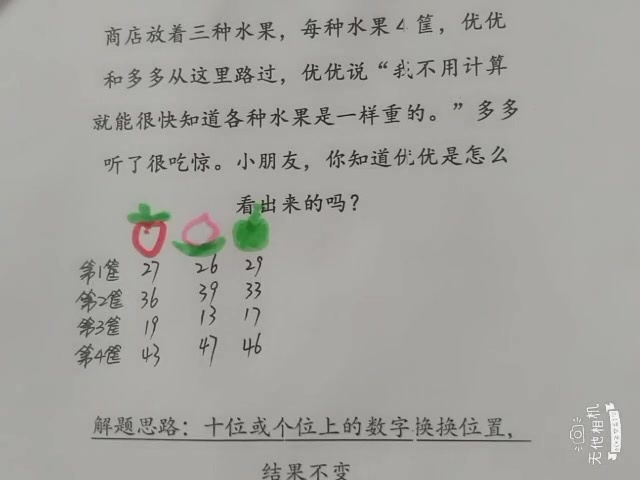 商店放着三种水果，每种水果4筐，优优
和多多从这里路过，优优说“我不用计算
就能很快知道各种水果是一样重的。”多多
听了很吃惊。小朋友，你知道优优是怎么
看出来的吗？
第1筐 27 26 29
第2筐 36 39 33
第3筐 19 13 17
第4筐 43 47 46
解题思路：十位或个位上的数字换换位置，
结果不变
无他相机